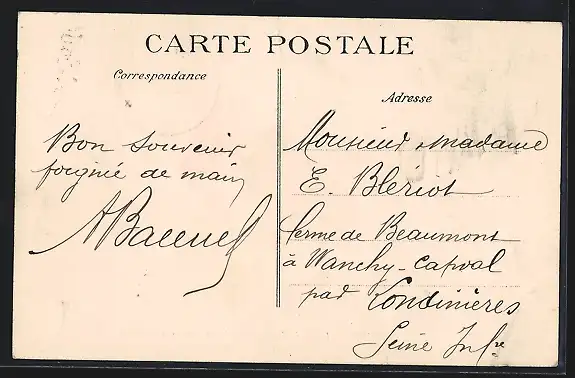 CARTE POSTALE
Correspondance
Adresse
Bon souvenir
poignée de main
Monsieur madame
E. Blériot
ferme de Beaumont
à Wanchy-Capval
par Londinières
Seine Infre